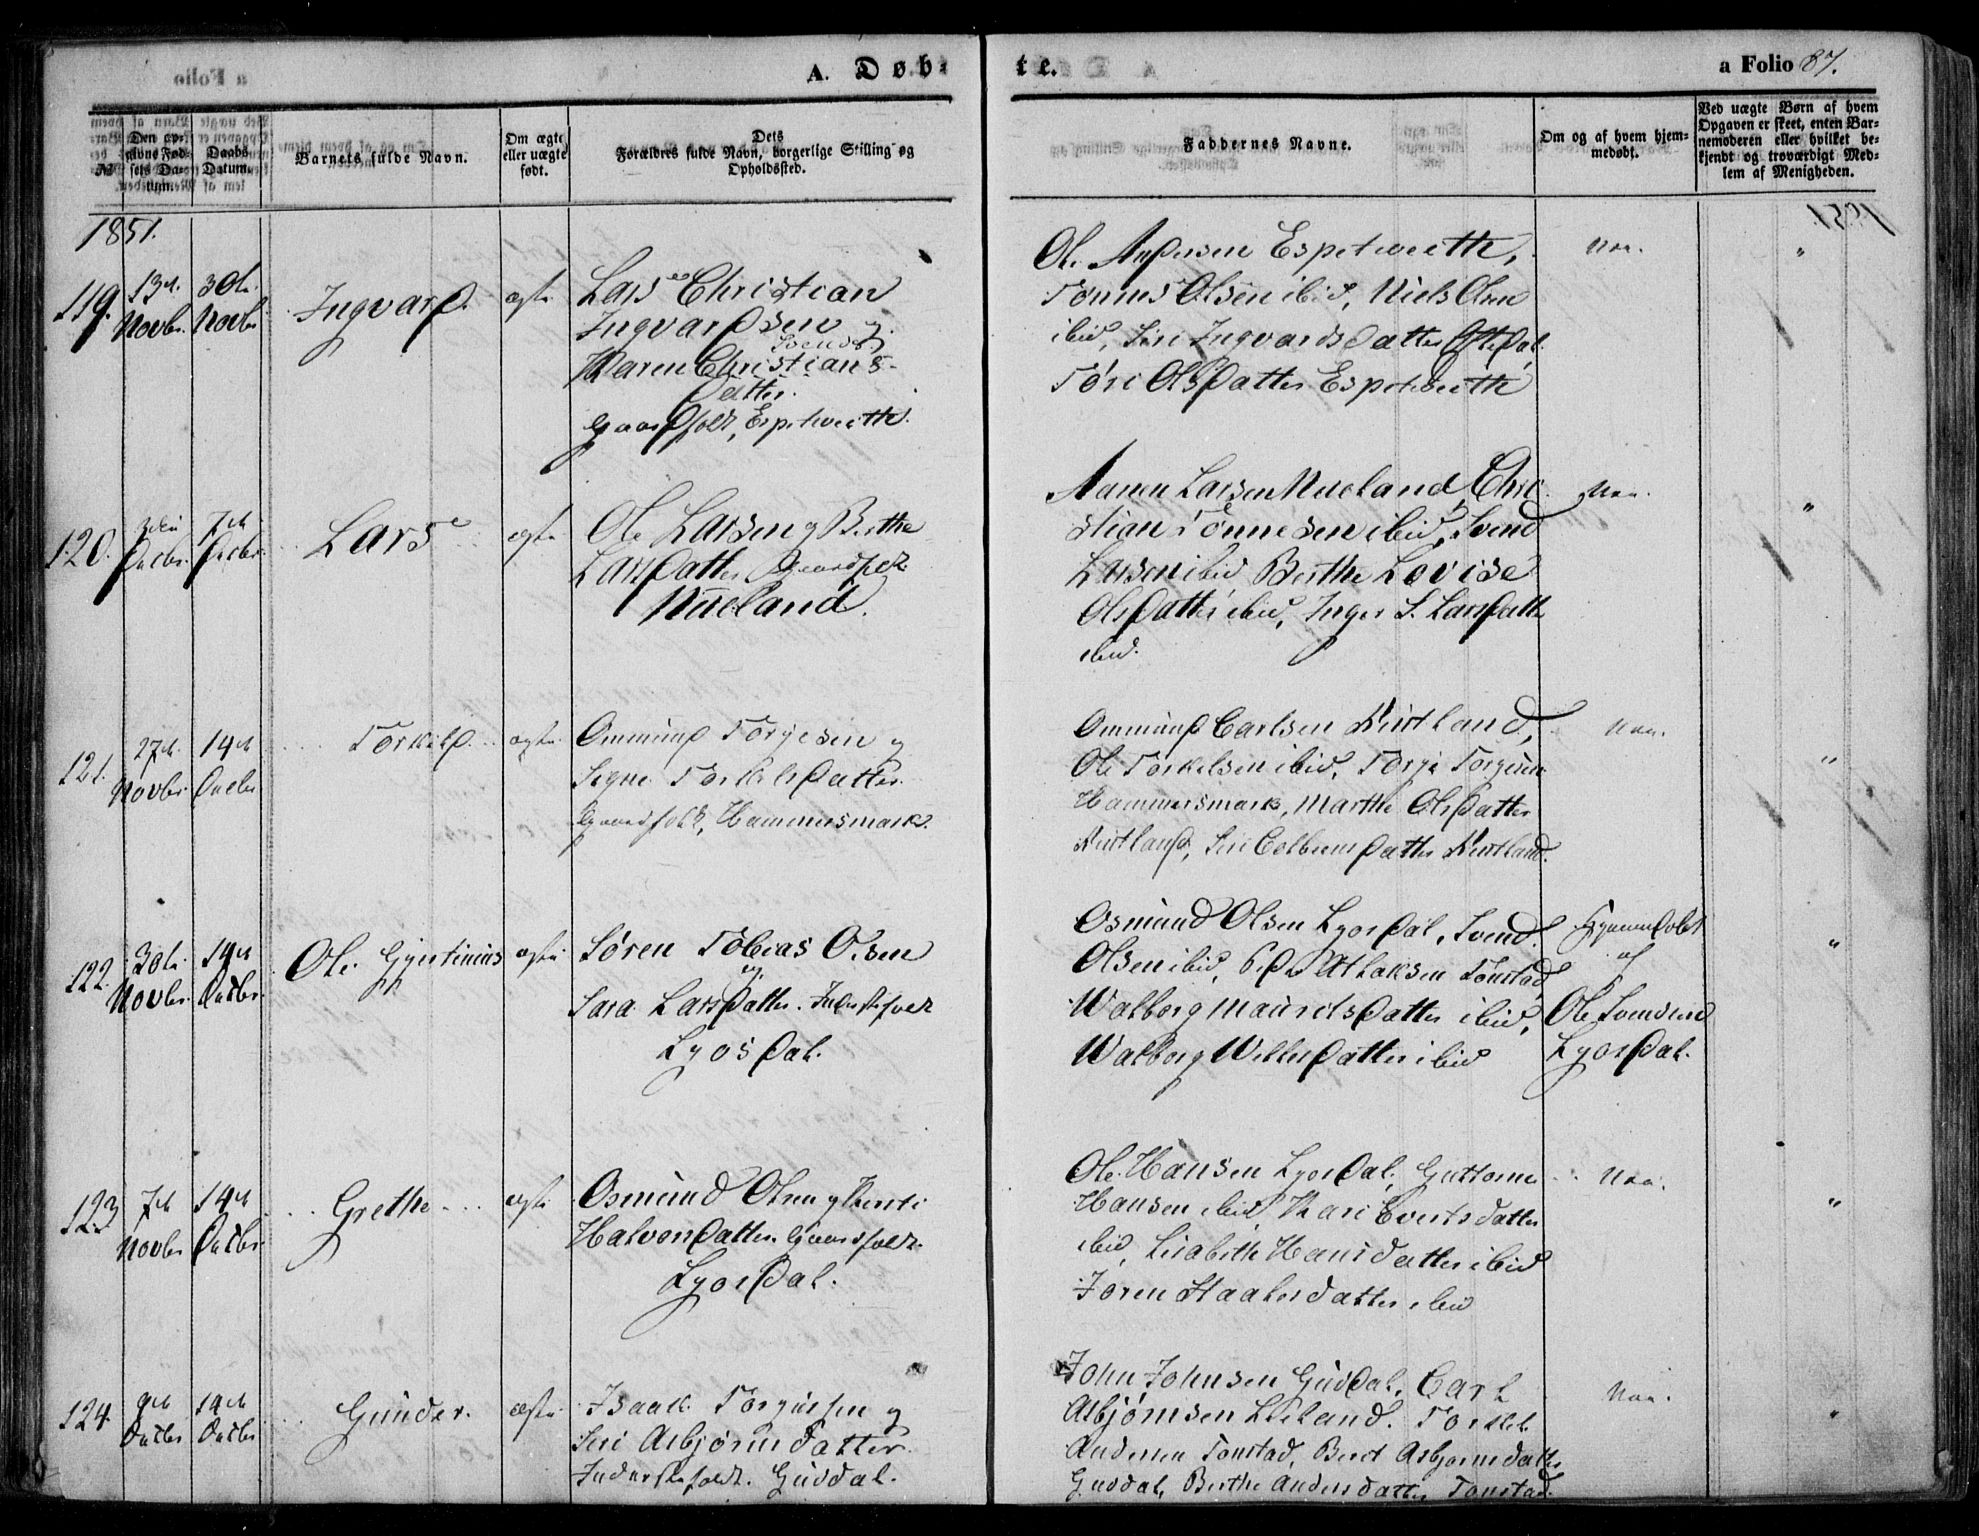 A. Døb-
te.
a Folio 87.
№
Den op-
givne Fød-
sels Da-
tum.
Daabs
Datum.
Barnets fulde Navn.
Om ægte
eller uægte
født.
Dets
Forældres fulde Navn, borgerlige Stilling og
Opholdssted.
Faddernes Navne.
Om og af hvem hjem-
medøbt.
Ved uægte Børn af hvem
Opgaven er skeet, enten Bar-
nemoderen eller hvilket be-
kjendt og troværdigt Med-
lem af Menigheden.
1851.
119.
13de
Novbr.
30te
Novbr
Ingvard.
ægte
Lars Christian
Ingvardsen og
Svends
Maren Christians-
Datter.
Gaardfolk, Espetveith.
Ole Andersen Espetveith,
Tønnes Olsen ibid, Niels Olsen
ibid, Siri Ingvards Datter
Tøri OlsDatter Espetveith
Nei.
"
120.
3die
Decbr.
7de
Decbr.
Lars
ægte
Ole Larsen og Berthe
LarsDatter Gaardfolk
Nueland.
Aanen Larsen Nueland, Chri-
stian Tønnesen ibid, Svend
Larsen ibid Berthe Lovise
OlsDatter ibid, Inger S. LarsDatter
ibid.
Nei.
"
121.
27de
Novbr
14de
Decbr
Torkild
ægte
Ommund Torjesen og
Signe TorkelsDatter
Gaardfolk, Hammersmark.
Ommund Carlsen Rustland,
Ole Torkelsen ibid, Torje Torjesen
Hammersmark, Marthe OlsDatter
Rustland, Siri Datter Rustland.
Nei.
"
122.
30te
Novbr.
14de
Decbr.
Ole Gjertinius
ægte
Søren Tobias Olsen
og
Sara LarsDatter. Inderstfolk
LyosDal.
Osmund Olsen LyosDal, Svend
Olsen ibid, Peder Atlaksen Tonstad,
Walborg MauritsDatter ibid,
Walborg Datter ibid
Hjemmedøbt
af
Ole Svendsen
LyosDal.
"
123
7de
Novbr
14de
Decbr.
Grethe
ægte
Osmund Olsen og Berit
HalvorsDatter. Gaardfolk
LyosDal.
Ole Hansen LyosDal, Guttorm
Hansen ibid, Kari EvertsDatter
ibid, Lisabeth HansDatter ibid
Jøren Datter ibid
Nei.
"
124.
9de
Decbr
14de
Decbr.
Gunder.
ægte
Isaak Torgiussen og
Siri AsbjørnsDatter
Inderstfolk. Guddal.
John Johnsen GudDal, Carl
Asbjørnsen Liland. Torkel
Andersen Tonstad, Berit AsbjørnsDatter
Guddal, Berthe AndersDatter Tonstad.
Nei.
"